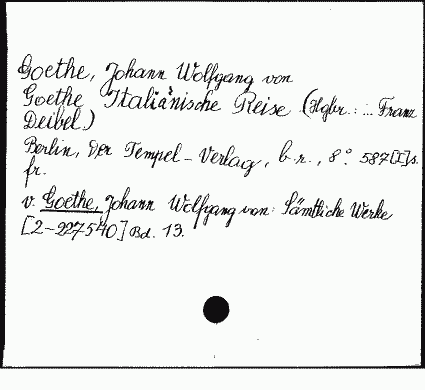 Goethe, Johann Wolfgang von
Goethe Italiänische Reise (Hgbr.: ... Franz
Deibel)
Berlin, Der Tempel-Verlag, b.r., 8°. 587[I]s.
fr.
v. Goethe, Johann Wolfgang von: Sämtliche Werke
[2-227540] Bd. 13.